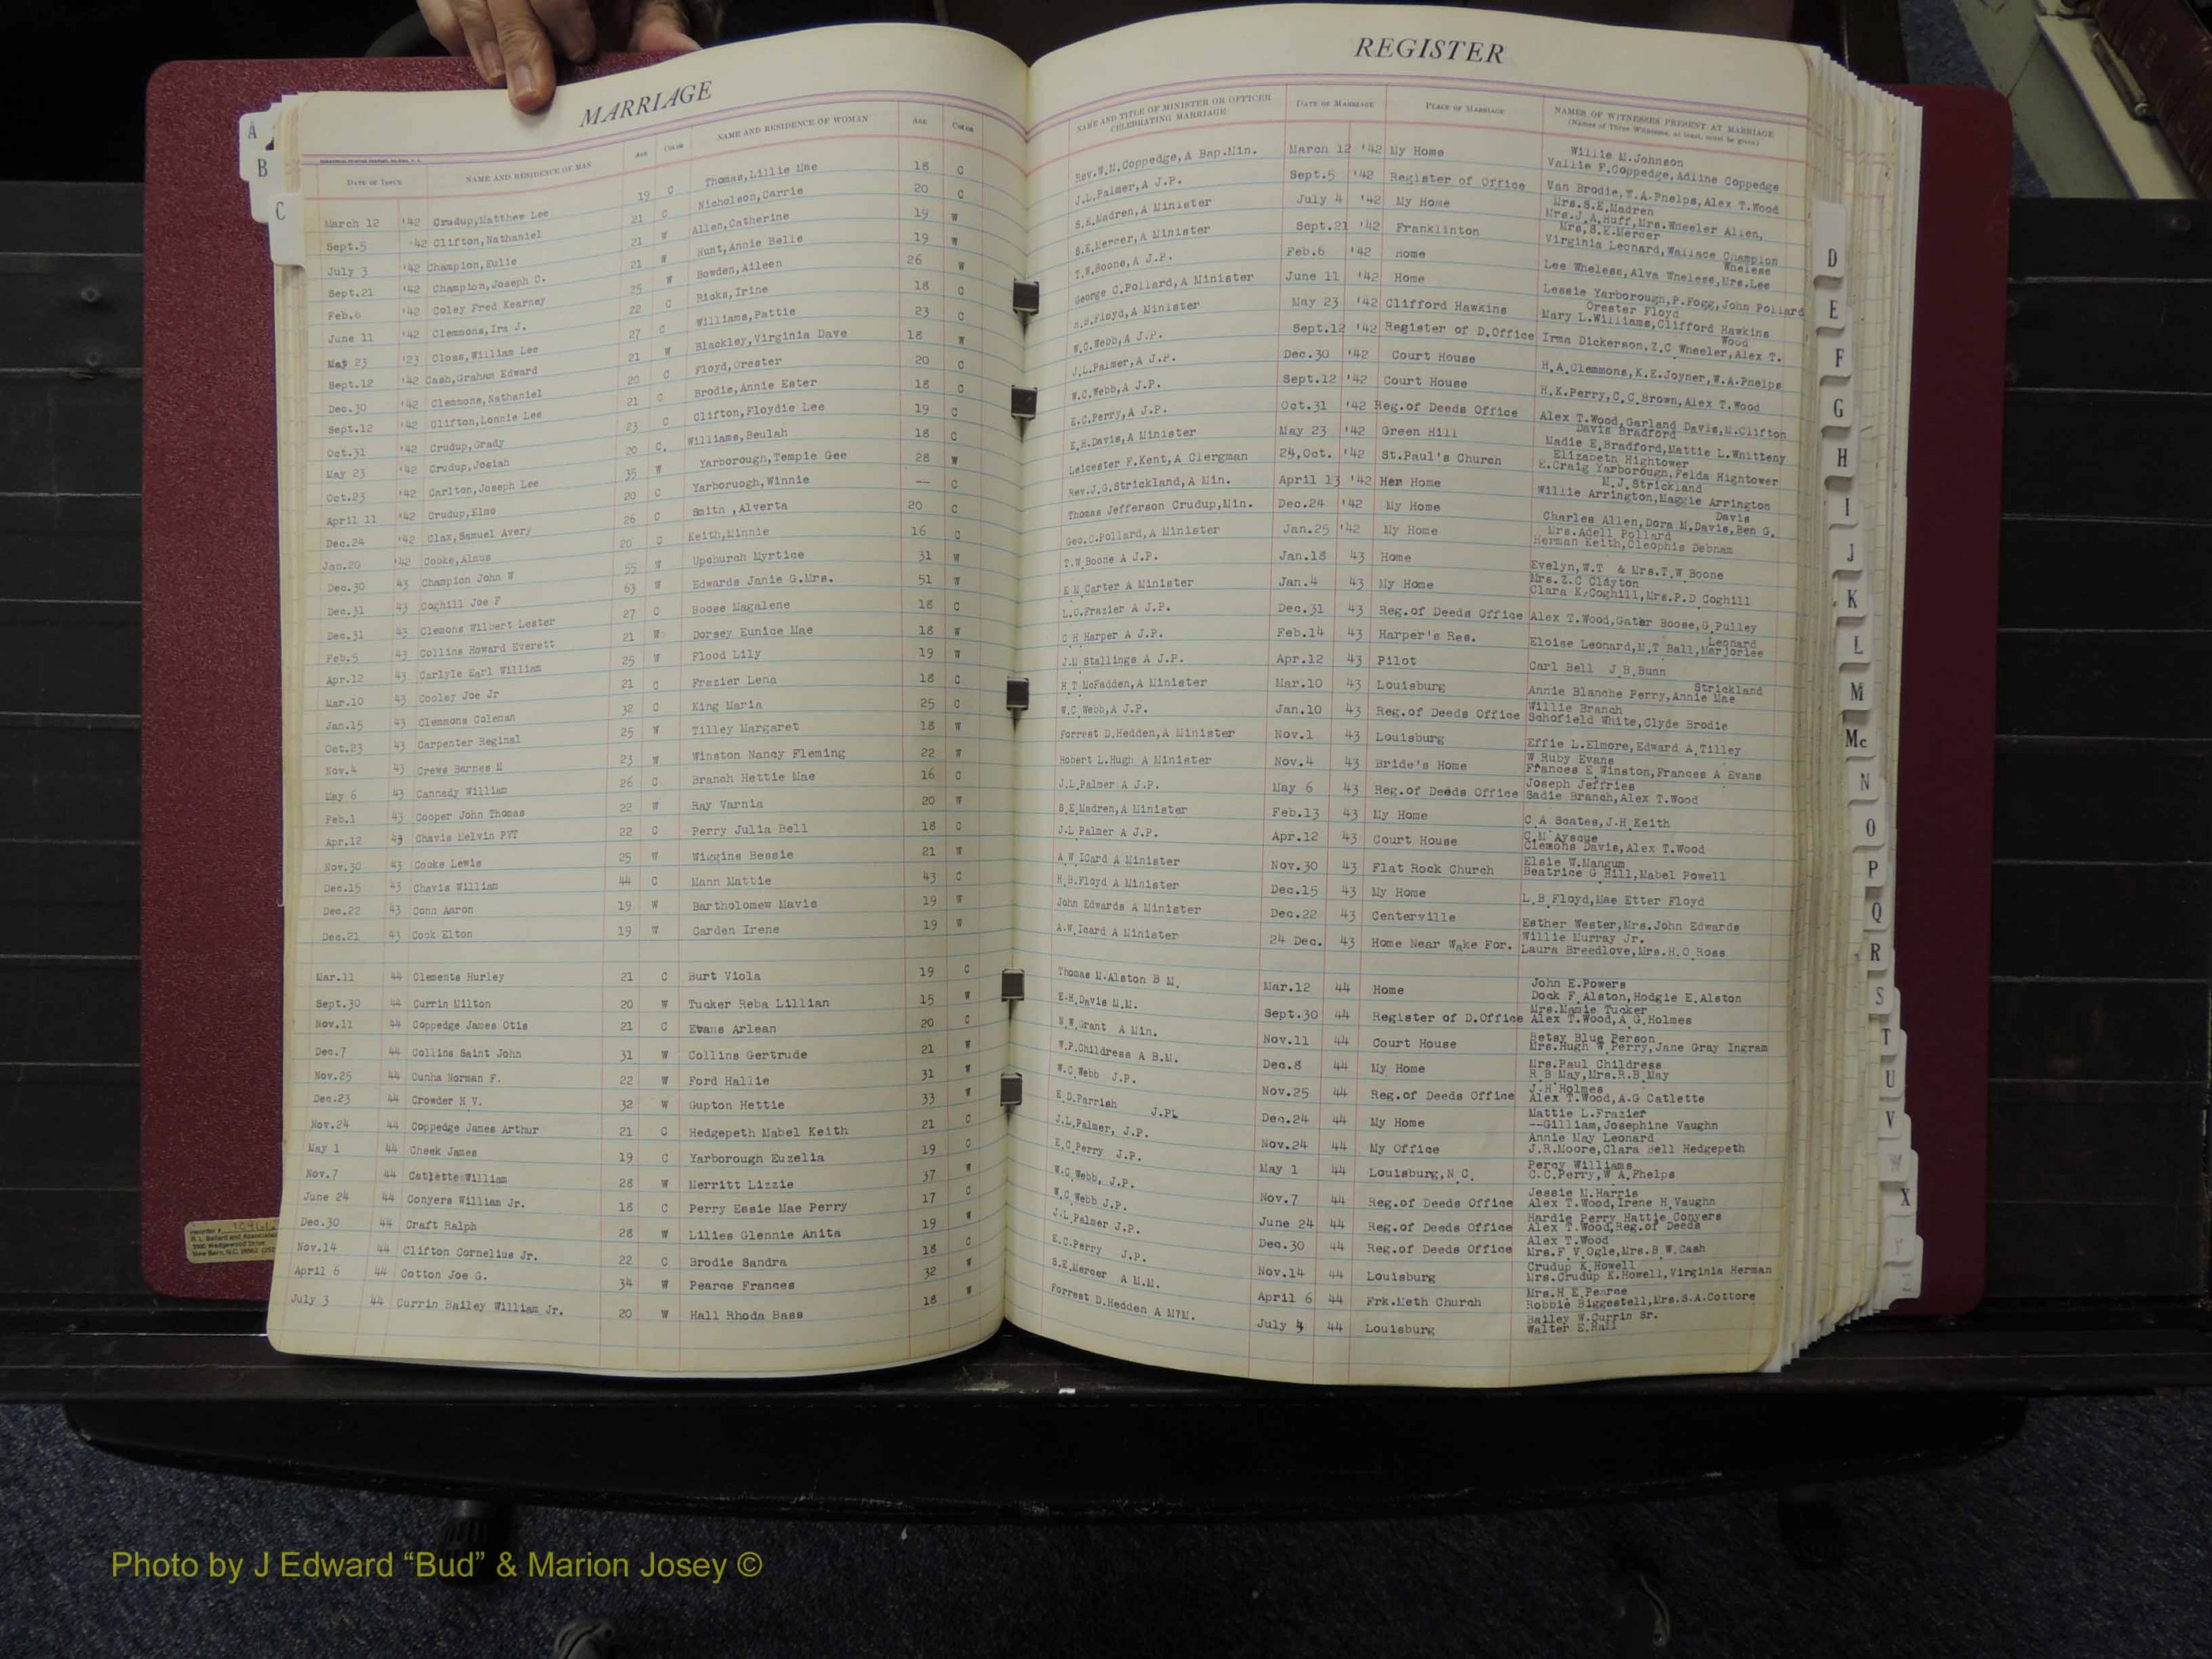 MARRIAGE
DATE OF ISSUE NAME AND RESIDENCE OF MAN AGE COLOR NAME AND RESIDENCE OF WOMAN AGE COLOR
March 12 '42 Crudup,Matthew Lee 19 C Thomas,Lillie Mae 18 C
Sept.5 '42 Clifton,Nathaniel 21 C Nicholson,Carrie 20 C
July 3 '42 Champion,Eulie 21 W Allen,Catherine 19 W
Sept.21 '42 Champion,Joseph C. 21 W Hunt,Annie Belle 19 W
Feb.6 '42 Coley Fred Kearney 25 W Bowden,Aileen 26 W
June 11 '42 Clemmons,Ira J. 22 C Ricks,Irine 18 C
May 23 '23 Closs,William Lee 27 C Williams,Pattie 23 C
Sept.12 '42 Cash,Graham Edward 21 W Blackley,Virginia Dave 18 W
Dec.30 '42 Clemmons,Nathaniel 20 C Floyd,Orester 20 C
Sept.12 '42 Clifton,Lonnie Lee 21 C Brodie,Annie Ester 18 C
Oct.31 '42 Crudup,Grady 23 C Clifton,Floydie Lee 19 C
May 23 '42 Crudup,Josiah 20 C. Williams,Beulah 18 C
Oct.23 '42 Carlton,Joseph Lee 35 W Yarborough,Temple Gee 28 W
April 11 '42 Crudup,Elmo 20 C Yarboruogh,Winnie -- C
Dec.24 '42 Clax,Samuel Avery 26 C Smith ,Alverta 20 C
Jan.20 '42 Cooke,Almus 20 C Keith,Minnie 16 C
Dec.30 43 Champion John W 55 W Upchurch Myrtice 31 W
Dec.31 43 Coghill Joe F 63 W Edwards Janie G.Mrs. 51 W
Dec.31 43 Clemons Wilbert Lester 27 C Boose Magalene 18 C
Feb.5 43 Collins Howard Everett 21 W Dorsey Eunice Mae 18 W
Apr.12 43 Carlyle Earl William 25 W Flood Lily 19 W
Mar.10 43 Cooley Joe Jr 21 C Frazier Lena 18 C
Jan.15 43 Clemmons Coleman 32 C King Maria 25 C
Oct.23 43 Carpenter Reginal 25 W Tilley Margaret 18 W
Nov.4 43 Crews Barnes M 23 W Winston Nancy Fleming 22 W
May 6 43 Cannady William 26 C Branch Hettie Mae 16 C
Feb.1 43 Cooper John Thomas 22 W Ray Varnia 20 W
Apr.12 43 Chavis Melvin PVT 22 C Perry Julia Bell 18 C
Nov.30 43 Cooke Lewis 25 W Wiggins Bessie 21 W
Dec.15 43 Chavis William 44 C Mann Mattie 43 C
Dec.22 43 Conn Aaron 19 W Bartholomew Mavis 19 W
Dec.21 43 Cook Elton 19 W Carden Irene 19 W
Mar.11 44 Clements Hurley 21 C Burt Viola 19 C
Sept.30 44 Currin Milton 20 W Tucker Reba Lillian 15 W
Nov.11 44 Coppedge James Otis 21 C Evans Arlean 20 C
Dec.7 44 Collins Saint John 31 W Collins Gertrude 21 W
Nov.25 44 Cunha Norman F. 22 W Ford Hallie 31 W
Dec.23 44 Crowder H V. 32 W Gupton Hettie 33 W
Nov.24 44 Coppedge James Arthur 21 C Hedgepeth Mabel Keith 21 C
May 1 44 Cheek James 19 C Yarborough Euzelia 19 C
Nov.7 44 Catlette William 28 W Merritt Lizzie 37 W
June 24 44 Conyers William Jr. 18 C Perry Essie Mae Perry 17 C
Dec.30 44 Craft Ralph 28 W Liles Glennie Anita 19 W
Nov.14 44 Clifton Cornelius Jr. 22 C Brodie Sandra 18 C
April 6 44 Cotton Joe G. 34 W Pearce Frances 32 W
July 3 44 Currin Bailey William Jr. 20 W Hall Rhoda Bass 18 W
REGISTER
NAME AND TITLE OF MINISTER OR OFFICER CELEBRATING MARRIAGE DATE OF MARRIAGE PLACE OF MARRIAGE NAMES OF WITNESSES PRESENT AT MARRIAGE
(Names of Three Witnesses, at least, must be given)
Willie M.Johnson
Rev.W.M.Coppedge,A Bap.Min. March 12 '42 My Home Vallie F.Coppedge,Adline Coppedge
J.L.Palmer,A J.P. Sept.5 '42 Register of Office Van Brodie,W.A.Phelps,Alex T.Wood
Mrs.S.E.Madren
S.E.Madren,A Minister July 4 '42 My Home Mrs.J.A.Huff,Mrs.Wheeler Allen,
Mrs,S.E.Mercer
S.E.Mercer,A Minister Sept.21 '42 Franklinton Virginia Leonard,Wallace Champion
Wheless
T.W.Boone,A J.P. Feb.6 '42 Home Lee Wheless,Alva Wheless,Mrs.Lee
George C.Pollard,A Minister June 11 '42 Home Lessie Yarborough,P.Fogg,John Pollard
Orester Floyd
H.B.Floyd,A Minister May 23 '42 Clifford Hawkins Mary L.Williams,Clifford Hawkins
Wood
W.C.Webb,A J.P. Sept.12 '42 Register of D.Office Irma Dickerson,Z.C Wheeler,Alex T.
J.L.Palmer,A J.P. Dec.30 '42 Court House H.A.Clemmons,K.E.Joyner,W.A.Phelps
W.C.Webb,A J.P. Sept.12 '42 Court House H.K.Perry,C.C.Brown,Alex T.Wood
E.C.Perry,A J.P. Oct.31 '42 Reg.of Deeds Office Alex T.Wood,Garland Davis,M.Clifton
Davis Bradford
E.H.Davis,A Minister May 23 '42 Green Hill Madie E.Bradford,Mattie L.Whitteny
Elizabeth Hightower
Leicester F.Kent,A Clergman 24,Oct. '42 St.Paul's Church E.Craig Yarborough,Felda Hightower
M.J.Strickland
Rev.J.G.Strickland,A Min. April 13 '42 Her Home Willie Arrington,Maggie Arrington
Davis
Thomas Jefferson Crudup,Min. Dec.24 '42 My Home Charles Allen,Dora M.Davis,Ben G.
Mrs.Adell Pollard
Geo.C.Pollard,A Minister Jan.25 '42 My Home Herman Keith,Cleophis Debnam
T.W.Boone A J.P. Jan.18 43 Home Evelyn,W.T & Mrs.T.W Boone
Mrs.Z.C Clayton
E M.Carter A Minister Jan.4 43 My Home Clara K.Coghill,Mrs.P.D Coghill
L.O.Frazier A J.P. Dec.31 43 Reg.of Deeds Office Alex T.Wood,Gather Boose,G.Pulley
Leonard
C H Harper A J.P. Feb.14 43 Harper's Res. Eloise Leonard,M.T Ball,Marjorlee
J.M Stallings A J.P. Apr.12 43 Pilot Carl Bell J.B.Bunn
Strickland
H T McFadden,A Minister Mar.10 43 Louisburg Annie Blanche Perry,Annie Mae
Willie Branch
W.C Webb,A J.P. Jan.10 43 Reg.of Deeds Office Schofield White,Clyde Brodie
Forrest D.Hedden,A Minister Nov.1 43 Louisburg Effie L.Elmore,Edward A.Tilley
W Ruby Evans
Robert L.Hugh A Minister Nov.4 43 Bride's Home Frances E Winston,Frances A Evans
Joseph Jeffries
J.L.Palmer A J.P. May 6 43 Reg.of Deeds Office Sadie Branch,Alex T.Wood
S.E.Madren,A Minister Feb.13 43 My Home C.A.Scates,J.H.Keith
C.M Ayscue
J.L Palmer A J.P. Apr.12 43 Court House Clemons Davis,Alex T.Wood
Elsie W.Mangum
A W ICard A Minister Nov.30 43 Flat Rock Church Beatrice G Hill,Mabel Powell
H.B.Floyd A Minister Dec.15 43 My Home L.B Floyd,Mae Etter Floyd
John Edwards A Minister Dec.22 43 Centerville Esther Wester,Mrs.John Edwards
Willie Murray Jr.
A.W.Icard A Minister 24 Dec. 43 Home Near Wake For. Laura Breedlove,Mrs.H.O Ross
John E.Powers
Thomas M.Alston B M. Mar.12 44 Home Dock F.Alston,Hodgie E.Alston
Mrs.Mamie Tucker
E.H.Davis M.M. Sept.30 44 Register of D.Office Alex T.Wood,A G.Holmes
Betsy Blue Person
N W.Grant A Min. Nov.11 44 Court House Mrs.Hugh W Perry,Jane Gray Ingram
Mrs.Paul Childress
W.P.Childress A B.M. Dec.8 44 My Home R B May,Mrs.R.B May
J.H Holmes
W.C.Webb J.P. Nov.25 44 Reg.of Deeds Office Alex T.Wood,A.G Catlette
Mattie L.Frazier
E D.Parrish J.PL Dec.24 44 My Home --Gilliam,Josephine Vaughn
Annie May Leonard
J.L.Palmer, J.P. Nov.24 44 My Office J.R.Moore,Clara Bell Hedgepeth
Percy Williams
E.C.Perry J.P. May 1 44 Louisburg,N C. C.C.Perry,W A.Phelps
Jessie M.Harris
W.C.Webb, J.P. Nov.7 44 Reg.of Deeds Office Alex T.Wood,Irene H.Vaughn
Hardie Perry Hattie Conyers
W C Webb J.P. June 24 44 Reg.of Deeds Office Alex T.Wood,Reg.of Deeds
Alex T.Wood
J.L.Palmer J.P. Dec.30 44 Reg.of Deeds Office Mrs.F V.Ogle,Mrs.B W.Cash
Crudup K.Howell
E.C.Perry J.P. Nov.14 44 Louisburg Mrs.Crudup K.Howell,Virginia Herman
Mrs.H E.Pearce
S.E.Mercer A M.M. April 6 44 Frk.Meth Church Robbie Biggestell,Mrs.S.A.Cottore
Bailey W.Currin Sr.
Forrest D.Hedden A M?M. July 4 44 Louisburg Walter E.Hall
A
B
C
D
E
F
G
H
I
J
K
L
M
Mc
N
O
P
Q
R
S
T
U
V
X
Photo by J Edward “Bud” & Marion Josey ©